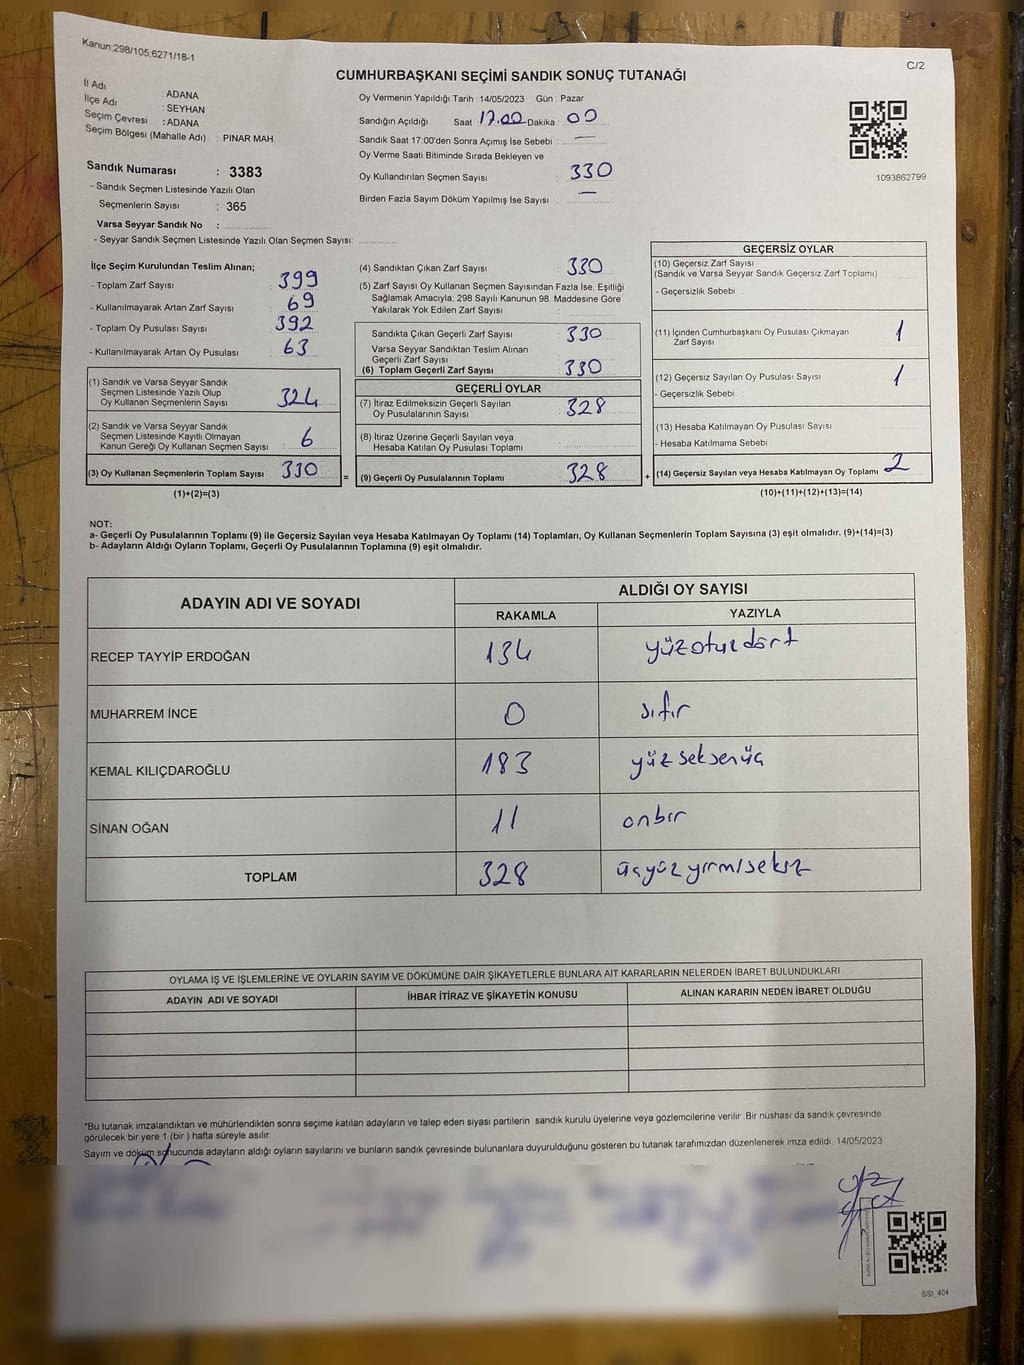 Kanun:298/105;6271/18-1
C/2
CUMHURBAŞKANI SEÇİMİ SANDIK SONUÇ TUTANAĞI
İl Adı : ADANA
İlçe Adı : SEYHAN
Seçim Çevresi : ADANA
Seçim Bölgesi (Mahalle Adı) : PINAR MAH.
Sandık Numarası : 3383
- Sandık Seçmen Listesinde Yazılı Olan
Seçmenlerin Sayısı : 365
Varsa Seyyar Sandık No :
- Seyyar Sandık Seçmen Listesinde Yazılı Olan Seçmen Sayısı:
Oy Vermenin Yapıldığı Tarih :14/05/2023 Gün : Pazar
Sandığın Açıldığı Saat 17.00 Dakika : 00
Sandık Saat 17:00'den Sonra Açımış İse Sebebi : —
Oy Verme Saati Bitiminde Sırada Bekleyen ve
Oy Kullandırılan Seçmen Sayısı : 330
Birden Fazla Sayım Döküm Yapılmış İse Sayısı : —
1093862799
İlçe Seçim Kurulundan Teslim Alınan;
- Toplam Zarf Sayısı : 399
- Kullanılmayarak Artan Zarf Sayısı : 69
- Toplam Oy Pusulası Sayısı : 392
- Kullanılmayarak Artan Oy Pusulası : 63
(1) Sandık ve Varsa Seyyar Sandık
Seçmen Listesinde Yazılı Olup
Oy Kullanan Seçmenlerin Sayısı : 324
(2) Sandık ve Varsa Seyyar Sandık
Seçmen Listesinde Kayıtlı Olmayan
Kanun Gereği Oy Kullanan Seçmen Sayısı : 6
(3) Oy Kullanan Seçmenlerin Toplam Sayısı : 330
(1)+(2)=(3)
(4) Sandıktan Çıkan Zarf Sayısı : 330
(5) Zarf Sayısı Oy Kullanan Seçmen Sayısından Fazla İse, Eşitliği
Sağlamak Amacıyla; 298 Sayılı Kanunun 98. Maddesine Göre
Yakılarak Yok Edilen Zarf Sayısı :
Sandıkta Çıkan Geçerli Zarf Sayısı : 330
Varsa Seyyar Sandıktan Teslim Alınan
Geçerli Zarf Sayısı :
(6) Toplam Geçerli Zarf Sayısı : 330
GEÇERLİ OYLAR
(7) İtiraz Edilmeksizin Geçerli Sayılan
Oy Pusulalarının Sayısı : 328
(8) İtiraz Üzerine Geçerli Sayılan veya
Hesaba Katılan Oy Pusulası Toplamı :
= (9) Geçerli Oy Pusulalarının Toplamı : 328
GEÇERSİZ OYLAR
(10) Geçersiz Zarf Sayısı
(Sandık ve Varsa Seyyar Sandık Geçersiz Zarf Toplamı)
- Geçersizlik Sebebi :
(11) İçinden Cumhurbaşkanı Oy Pusulası Çıkmayan
Zarf Sayısı : 1
(12) Geçersiz Sayılan Oy Pusulası Sayısı : 1
- Geçersizlik Sebebi :
(13) Hesaba Katılmayan Oy Pusulası Sayısı :
- Hesaba Katılmama Sebebi :
+ (14) Geçersiz Sayılan veya Hesaba Katılmayan Oy Toplamı : 2
(10)+(11)+(12)+(13)=(14)
NOT:
a- Geçerli Oy Pusulalarının Toplamı (9) ile Geçersiz Sayılan veya Hesaba Katılmayan Oy Toplamı (14) Toplamları, Oy Kullanan Seçmenlerin Toplam Sayısına (3) eşit olmalıdır. (9)+(14)=(3)
b- Adayların Aldığı Oyların Toplamı, Geçerli Oy Pusulalarının Toplamına (9) eşit olmalıdır.
ADAYIN ADI VE SOYADI ALDIĞI OY SAYISI
RAKAMLA YAZIYLA
RECEP TAYYİP ERDOĞAN 134 yüzotuzdört
MUHARREM İNCE 0 sıfır
KEMAL KILIÇDAROĞLU 183 yüzseksenüç
SİNAN OĞAN 11 onbir
TOPLAM 328 üçyüzyirmisekiz
OYLAMA İŞ VE İŞLEMLERİNE VE OYLARIN SAYIM VE DÖKÜMÜNE DAİR ŞİKAYETLERLE BUNLARA AİT KARARLARIN NELERDEN İBARET BULUNDUKLARI
ADAYIN ADI VE SOYADI İHBAR İTİRAZ VE ŞİKAYETİN KONUSU ALINAN KARARIN NEDEN İBARET OLDUĞU
*Bu tutanak imzalandıktan ve mühürlendikten sonra seçime katılan adayların ve talep eden siyasi partilerin sandık kurulu üyelerine veya gözlemcilerine verilir. Bir nushası da sandık çevresinde
görülecek bir yere 1 (bir ) hafta süreyle asılır.
Sayım ve döküm sonucunda adayların aldığı oyların sayılarını ve bunların sandık çevresinde bulunanlara duyurulduğunu gösteren bu tutanak tarafımızdan düzenlenerek imza edildi. 14/05/2023
SS1_404